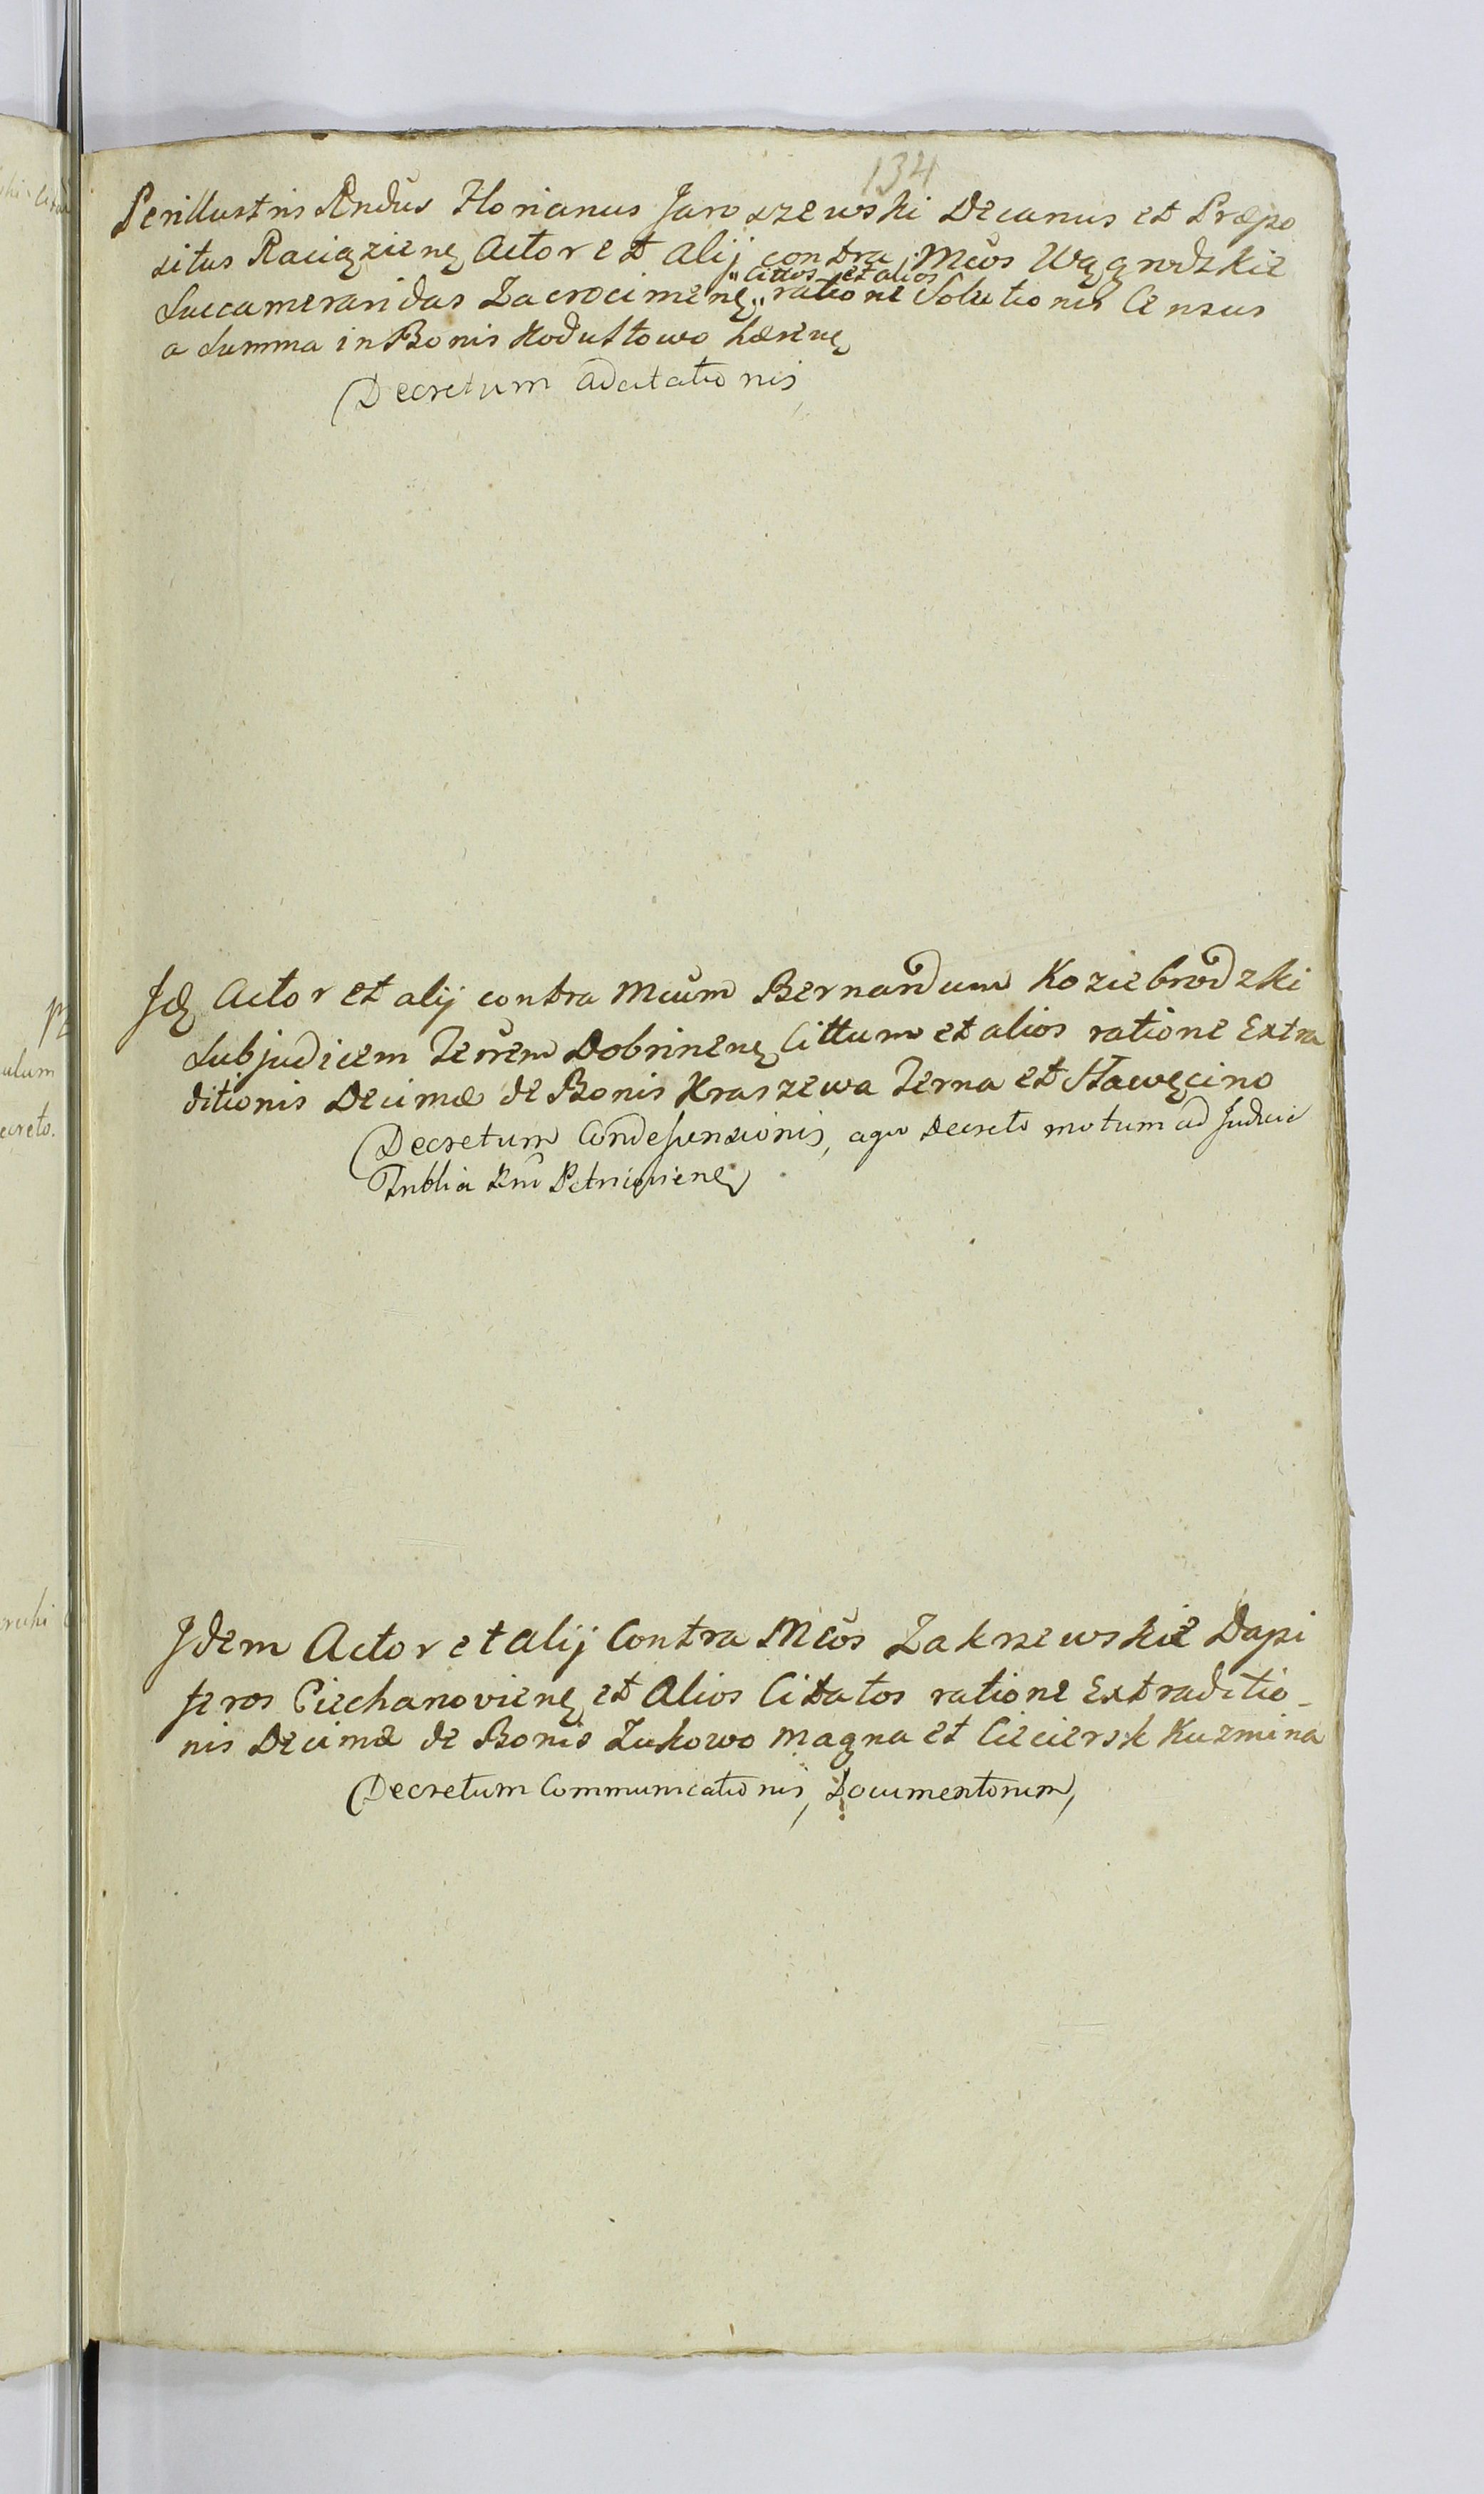 134
Perillustris Rndus Florianus Jaroszewski Decanus et Præpo
situs Raciązienę Actor et Alij contra Mcos Wągrodzkie
"Cittos et alios
Succameraridas Zacrocimenę" ratione Solutionis Census
a Summa in Bonis Kodułtowo hærenę
Decretum adcitationis
Jdę Actor et alij contra Mcum Bernardum Koziebrodzki
Subjudicem Terrem Dobrinenę Cittum et alios ratione Extra
ditionis Decimæ de Bonis Kraszewa Zerna et Sławęcino
Decretum Condescensionis, a quo Decreto motum ad Judicia
Tnblia Rni Petricovienę
Jdem Actor et alij Contra Mcos Zakrzewskie Dapi
feros Ciechanovienę et Alios Citatos ratione Extraditio-
nis Decimæ de Bonis Zukowo Magna et Ciciersk Kuzmina
Decretum Communicationis, Documentorum,
ulum
ecreto.